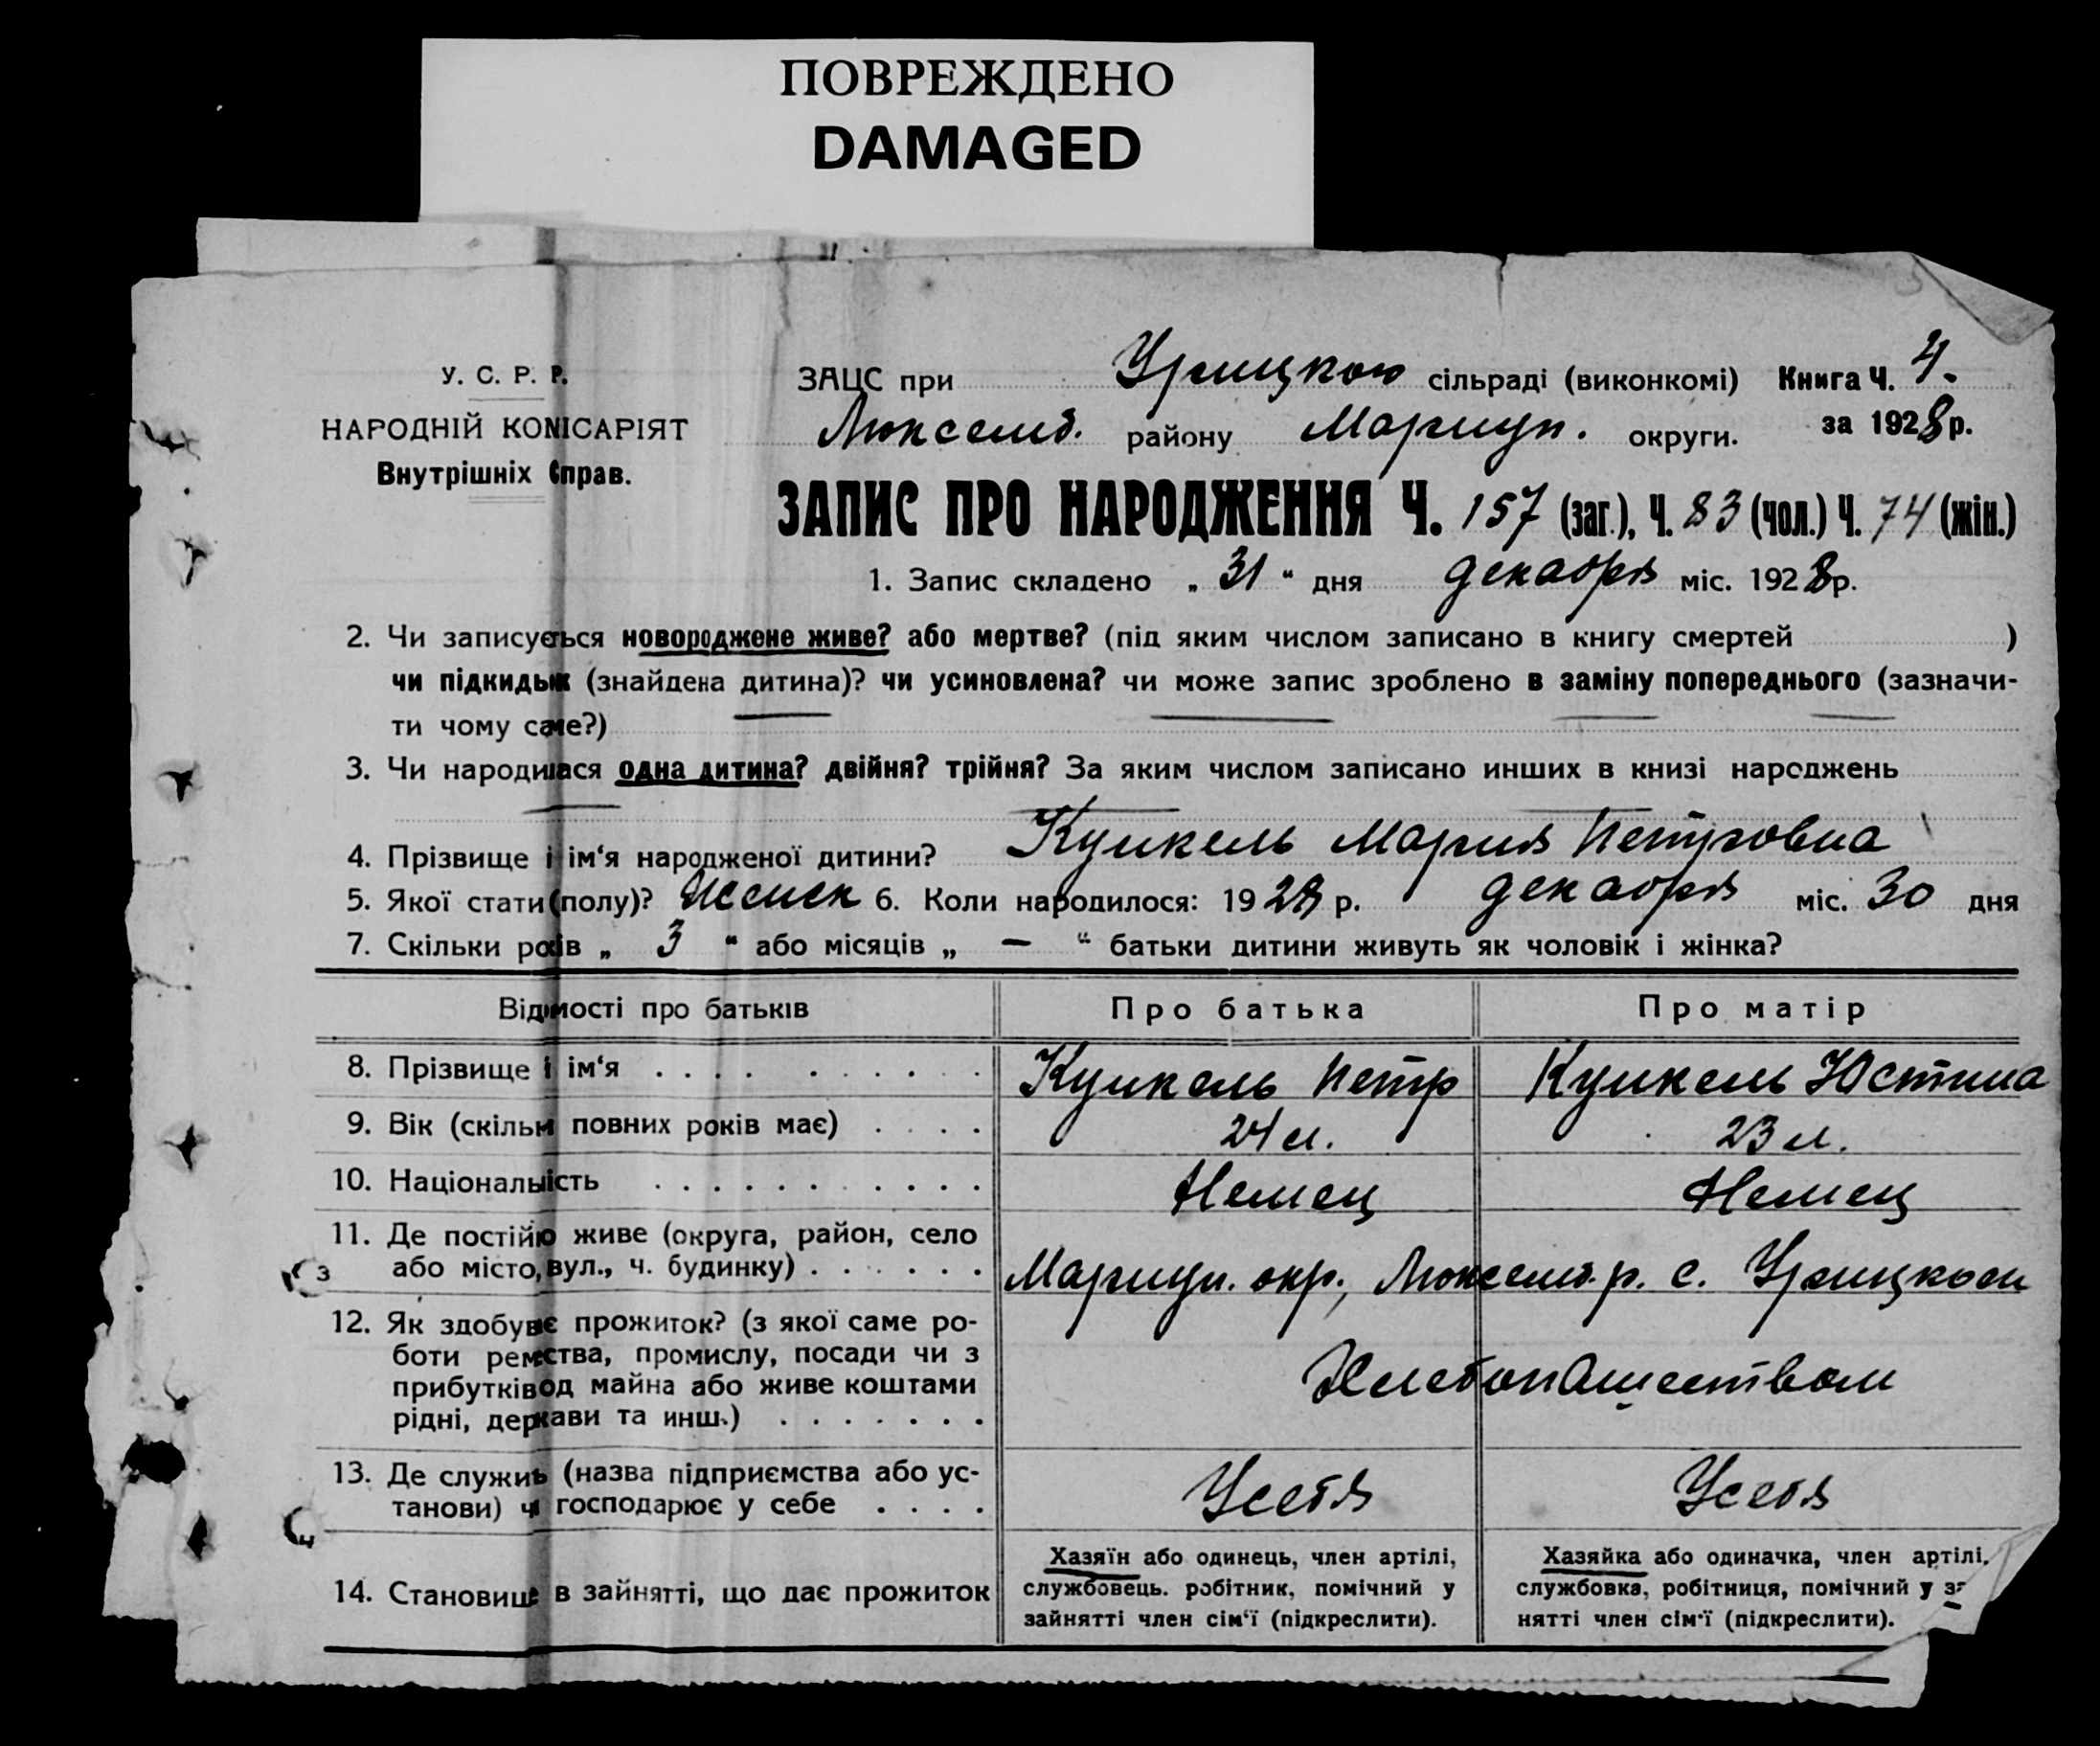 ПОВРЕЖДЕНО
DAMAGED
У. С. Р. Р. ЗАЦС при Урицкою сільраді (виконкомі) Книга Ч. 4.
НАРОДНІЙ КОМІСАРІЯТ Люксемб. району Мариуп. округи. за 1928 р.
Внутрішніх Справ.
ЗАПИС ПРО НАРОДЖЕННЯ Ч. 157 (заг.), Ч. 83 (чол.) Ч. 74 (жін.)
1. Запис складено „ 31 “ дня декабря міс. 1928 р.
2. Чи записується новороджене живе? або мертве? (під яким числом записано в книгу смертей )
чи підкидьок (знайдена дитина)? чи усиновлена? чи може запис зроблено в заміну попереднього (зазначи-
ти чому саме?)
3. Чи народилася одна дитина? двійня? трійня? За яким числом записано инших в книзі народжень
4. Прізвище і ім‘я народженої дитини? Кункель Мария Петровна
5. Якої стати (полу)? Женск 6. Коли народилося: 1928 р. декабря міс. 30 дня
7. Скільки років „ 3 “ або місяців „ — “ батьки дитини живуть як чоловік і жінка?
Відомості про батьків Про батька Про матір
8. Прізвище і ім‘я . . . . . . . . . . Кункель Петр Кункель Юстина
9. Вік (скільки повних років має) . . . . 24 л. 23 л.
10. Національність . . . . . . . . . . . Немец Немец
11. Де постійно живе (округа, район, село
або місто, вул., ч. будинку) . . . . . . Мариуп. окр., Люксемб. р. с. Урицкое
12. Як здобуває прожиток? (з якої саме ро-
боти ремества, промислу, посади чи з
прибутків од майна або живе коштами Хлебопашеством
рідні, держави та инш.) . . . . . . .
13. Де служить (назва підприємства або ус-
танови) чи господарює у себе . . . . У себя У себя
14. Становище в зайнятті, що дає прожиток
Хазяїн або одинець, член артілі,
службовець. робітник, помічний у
зайнятті член сім‘ї (підкреслити).
Хазяйка або одиначка, член артілі,
службовка, робітниця, помічний у за
нятті член сім‘ї (підкреслити).